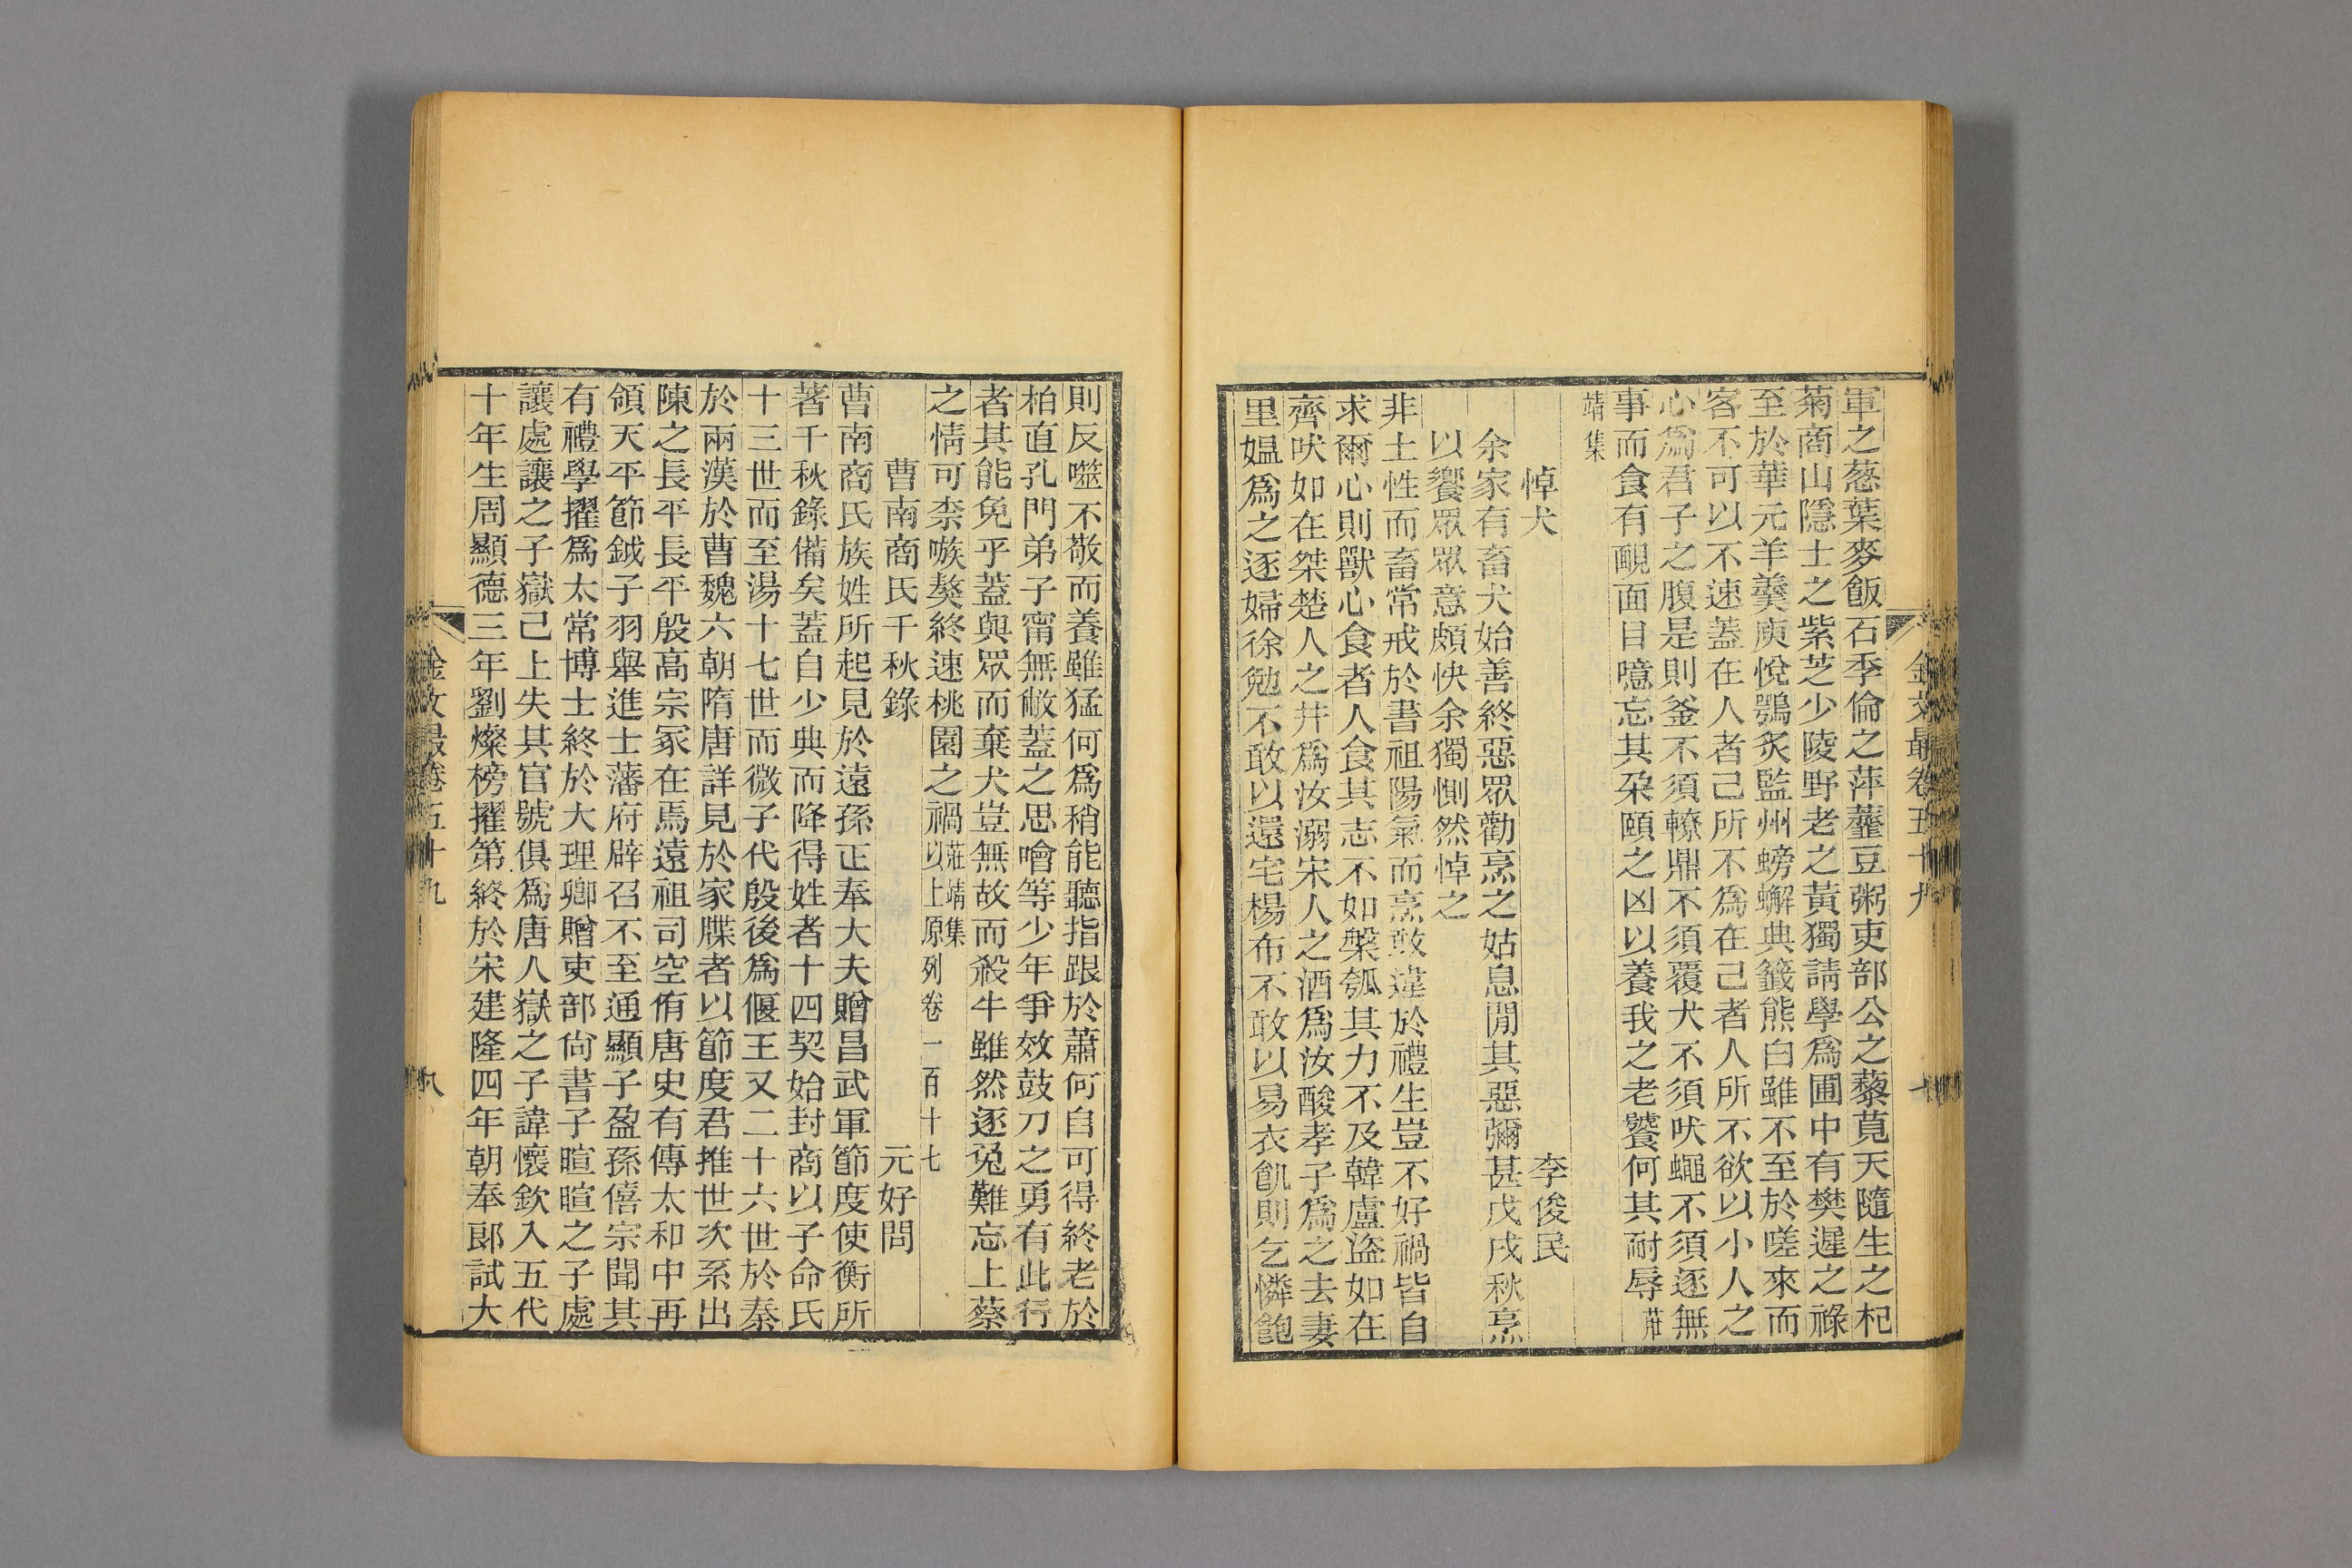 軍之葱葉麥飯石季倫之萍虀豆粥吏部公之藜莧天隨生之杞
菊商山隱士之紫芝少陵野老之黃獨請學爲圃中有樊遲之祿
至於華元羊羹庾悅鶚炙監州螃蠏典籤熊白雖不至於嗟來而
客不可以不速蓋在人者己所不爲在己者人所不欲以小人之
心爲君子之腹是則釜不須轑鼎不須覆犬不須吠蠅不須逐無
事而食有靦面目噫忘其朶頤之凶以養我之老饕何其耐辱莊
靖集
悼犬 李俊民
余家有畜犬始善終惡眾勸烹之姑息閒其惡彌甚戊戌秋烹
以饗眾眾意頗快余獨惻然悼之
非土性而畜常戒於書祖陽氣而烹敢違於禮生豈不好禍皆自
求爾心則獸心食者人食其志不如槃瓠其力不及韓盧盜如在
齊吠如在桀楚人之井爲汝溺宋人之酒爲汝酸孝子爲之去妻
里媼爲之逐婦徐勉不敢以還宅楊布不敢以易衣飢則乞憐飽
則反噬不敬而養雖猛何爲稍能聽指跟於蕭何自可得終老於
柏直孔門弟子甯無敝蓋之思噲等少年爭效鼓刀之勇有此行
者其能免乎蓋與眾而棄犬豈無故而殺牛雖然逐兔難忘上蔡
之情可柰嗾獒終速桃園之禍莊靖集以上原列卷一百十七
曹南商氏千秋錄 元好問
曹南商氏族姓所起見於遠孫正奉大夫贈昌武軍節度使衡所
著千秋錄備矣蓋自少典而降得姓者十四契始封商以子命氏
十三世而至湯十七世而微子代殷後爲偃王又二十六世於秦
於兩漢於曹魏六朝隋唐詳見於家牒者以節度君推世次系出
陳之長平長平殷高宗冢在焉遠祖司空侑唐史有傳太和中再
領天平節鉞子羽舉進士藩府辟召不至通顯子盈孫僖宗聞其
有禮學擢爲太常博士終於大理卿贈吏部尙書子暄暄之子處
讓處讓之子嶽己上失其官號俱爲唐人嶽之子諱懷欽入五代
十年生周顯德三年劉燦榜擢第終於宋建隆四年朝奉郎試大
金文最卷五十九
八